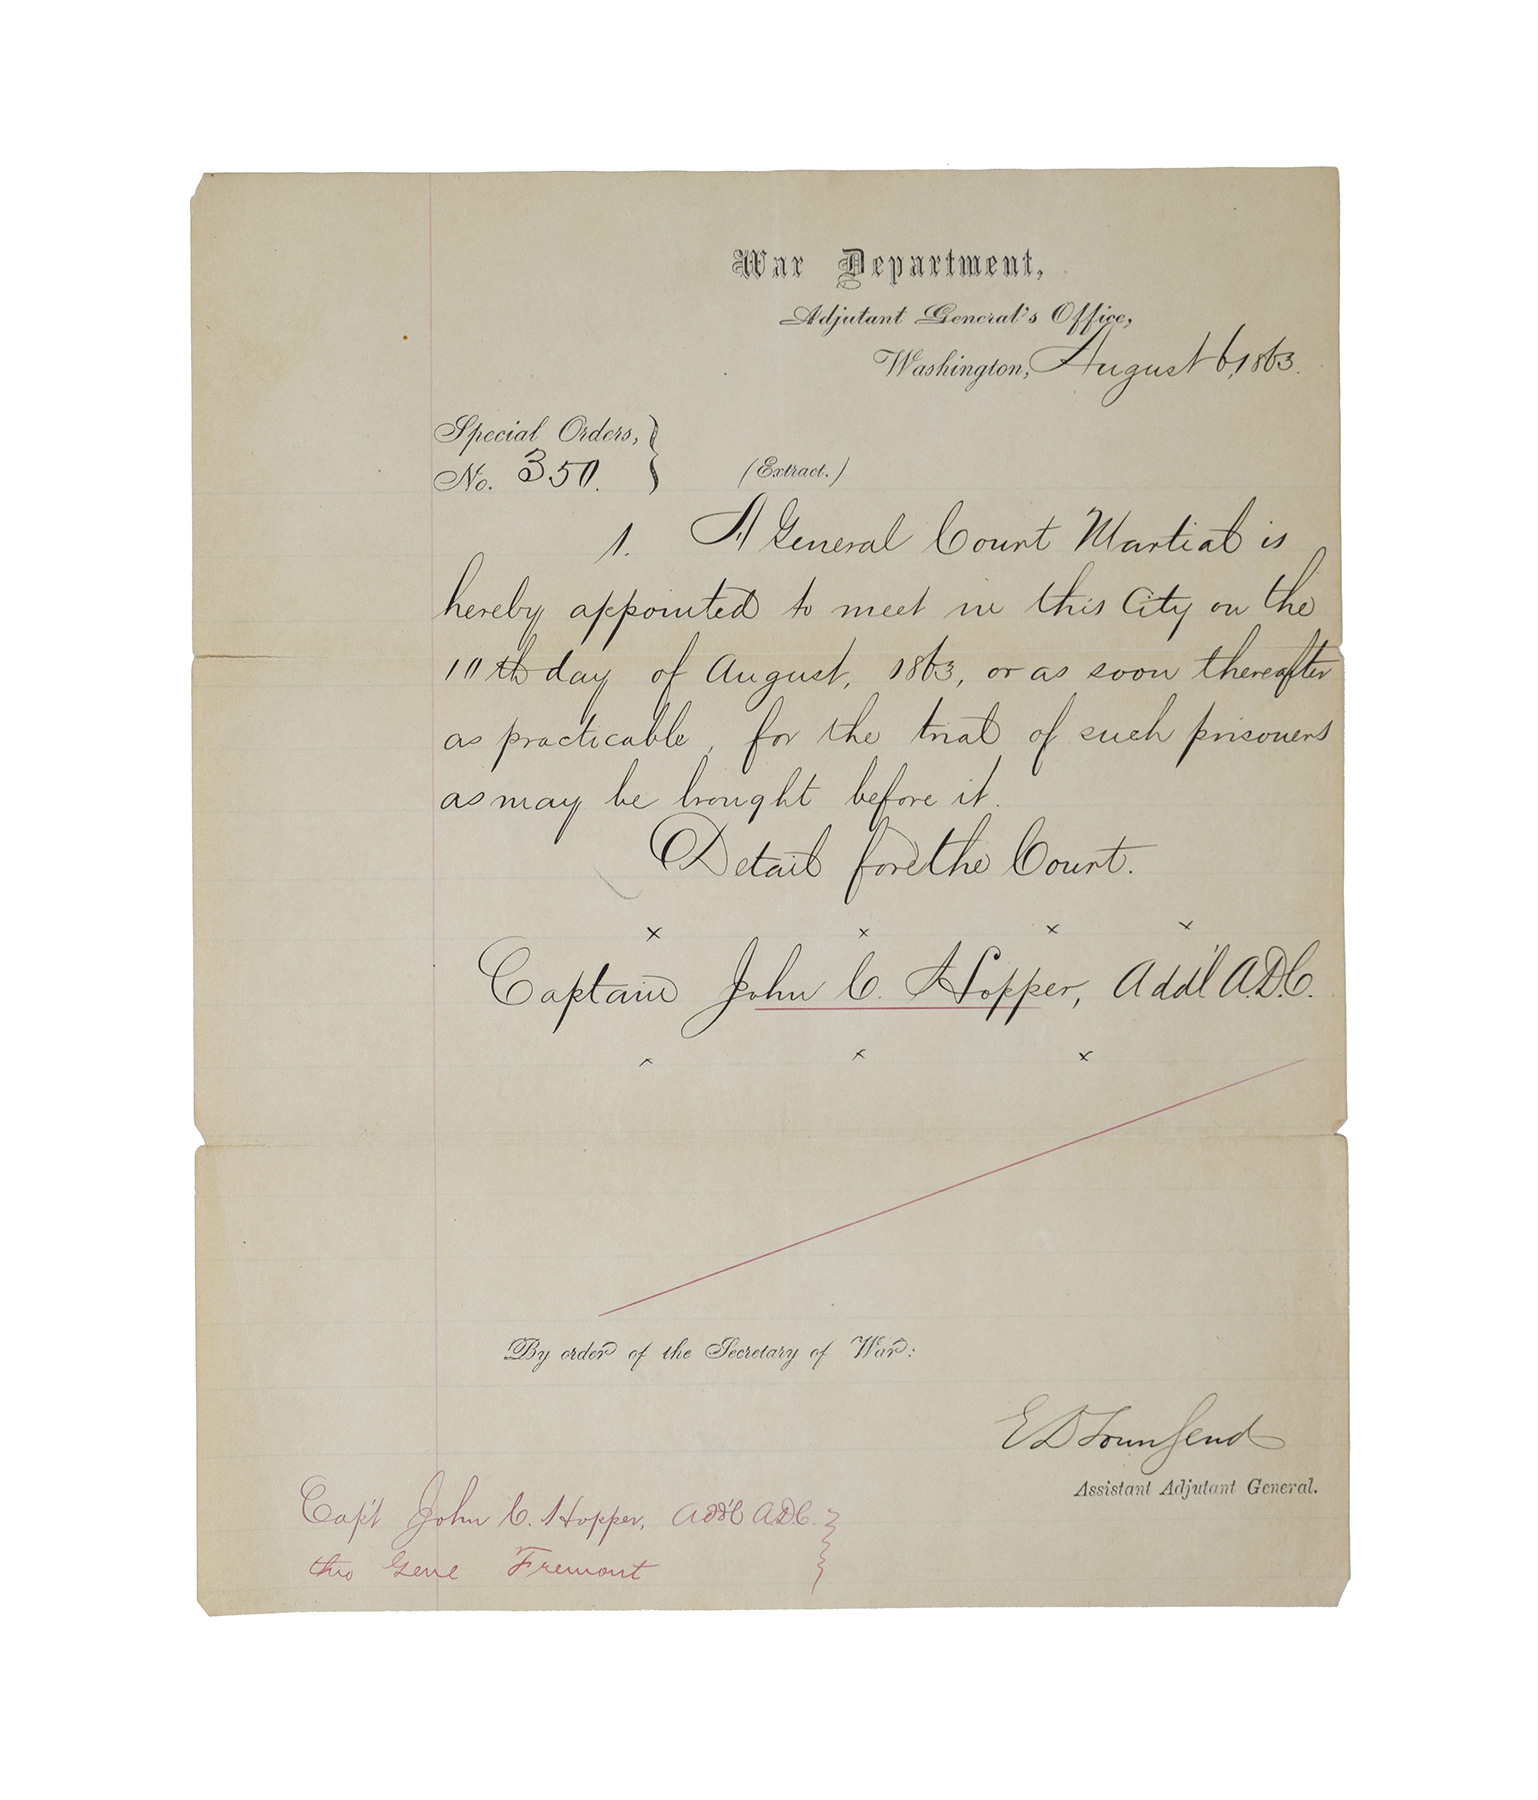 War Department,
Adjutant General's Office,
Washington, August 6, 1863.
Special Orders,
No. 350.
(Extract.)
1. A General Court Martial is
hereby appointed to meet in this City on the
10th day of August, 1863, or as soon thereafter
as practicable, for the trial of such prisoners
as may be brought before it.
Detail for the Court.
x x x x
Captain John C. Hopper, Add'l A.D.C.
x x x
By order of the Secretary of War:
E D Townsend
Assistant Adjutant General.
Capt John C. Hopper, Add'l A.D.C.
thro Genl Fremont